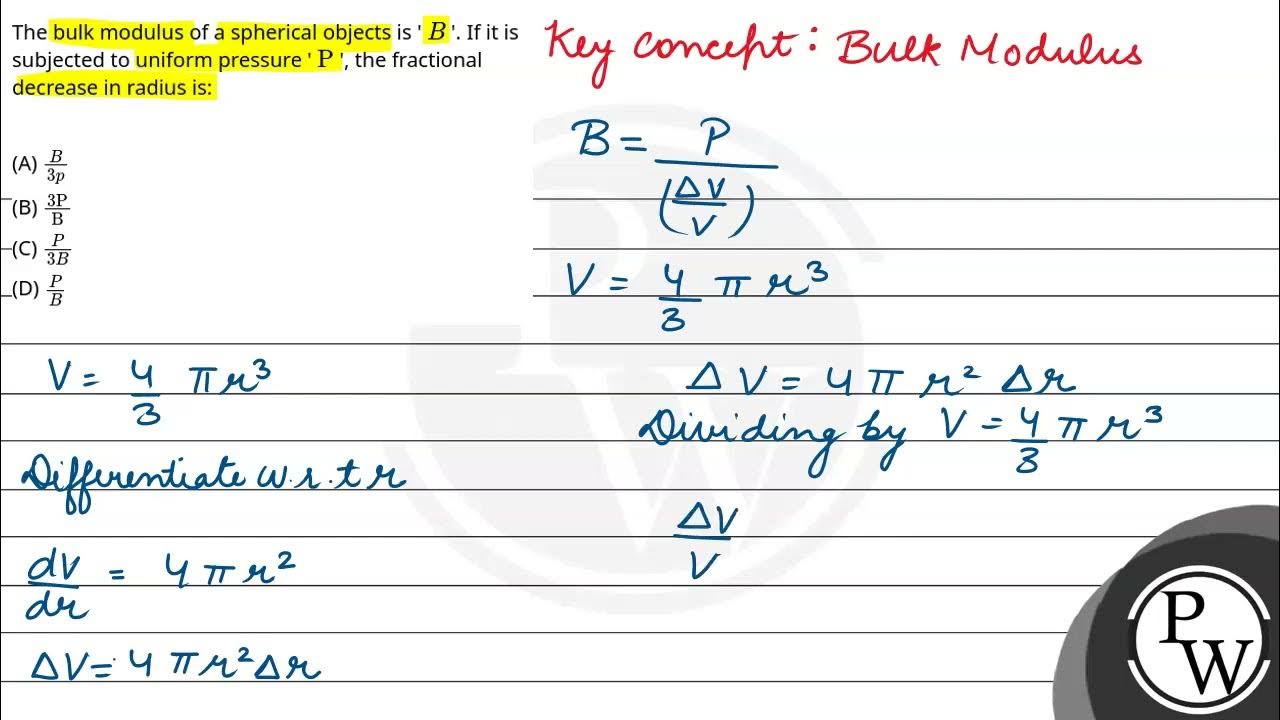 The bulk modulus of a spherical objects is ' B '. If it is
subjected to uniform pressure ' P ', the fractional
decrease in radius is:
(A) B/3p
(B) 3P/B
(C) P/3B
(D) P/B
Key concept : Bulk Modulus
B = P/(ΔV/V)
V = 4/3 π r³
V = 4/3 π r³
Differentiate w.r.t r
dV/dr = 4 π r²
ΔV = 4 π r² Δr
Δ V = 4 π r² Δr
Dividing by V = 4/3 π r³
ΔV/V
P
W
PW